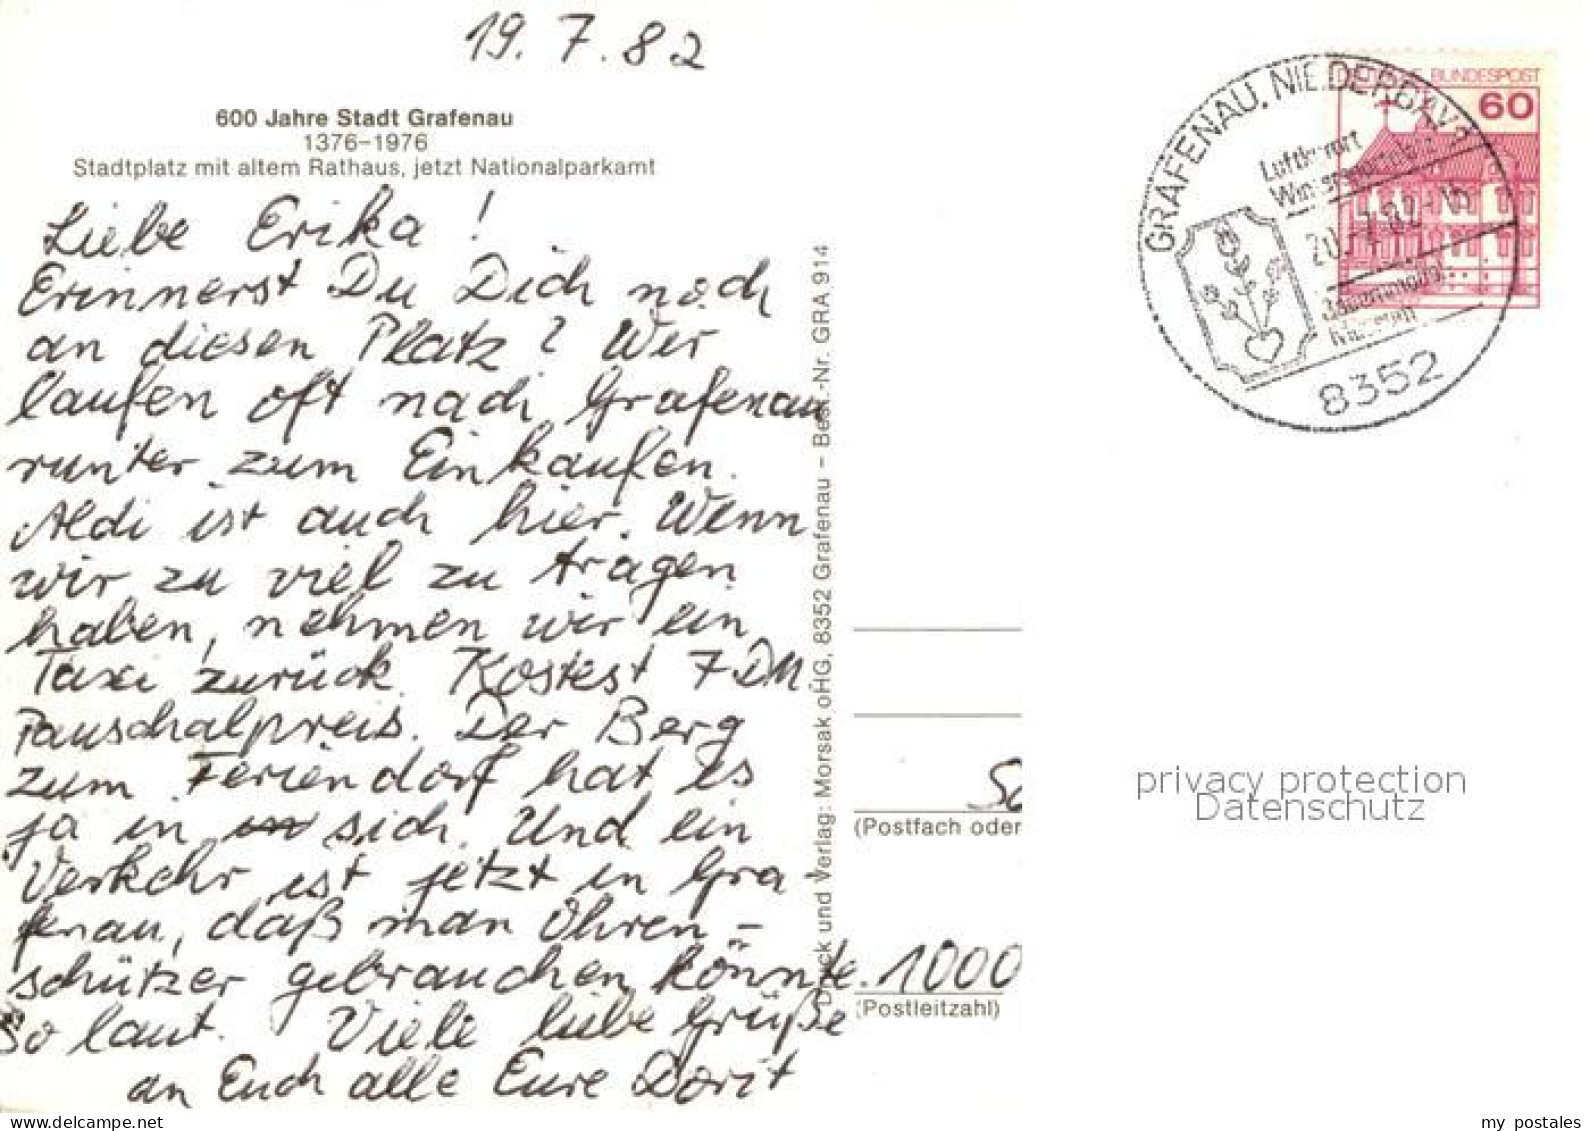 19.7.82
600 Jahre Stadt Grafenau
1376–1976
Stadtplatz mit altem Rathaus, jetzt Nationalparkamt
Liebe Erika!
Erinnerst Du Dich noch
an diesen Platz? Wir
laufen oft nach Grafenau
runter zum Einkaufen.
Aldi ist auch hier. Wenn
wir zu viel zu tragen
haben, nehmen wir ein
Taxi zurück. Kostest 7 DM
Pauschalpreis. Der Berg
zum Feriendorf hat es
ja in sich. Und ein
Verkehr ist jetzt in Gra-
fenau, daß man Ohren-
schützer gebrauchen könnte.
So laut. Viele liebe Grüße
an Euch alle Eure Dorit
Druck und Verlag: Morsak oHG, 8352 Grafenau – Best.-Nr. GRA 914
DEUTSCHE BUNDESPOST
60
GRAFENAU, NIEDERBAY 1
Luftkurort
Wintersportplatz
20.-7.82-15
8352
(Postfach oder
1000
(Postleitzahl)
privacy protection
Datenschutz
my postales